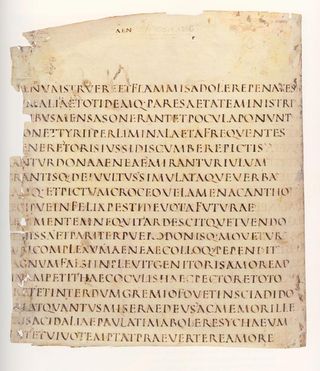 AEN
ENUMSTRVEREETFLAMMISADOLEREPENATES
REALIAETOTIDEMQ·PARESAETATEMINISTRI
IBUSMENSASONERANTETPOCULAPONUNT
ONETTYRIIPERLIMINALAETAFREQUENTES
ENERETORISIUSSIDISCUMBEREPICTIS
ANTURDONAAENEAEMIRANTURIULUM
RANTISQ·DEIVULTUSSIMULATAQUEVERBA
MQ·ETPICTUMCROCEOVELAMENACANTHO
CIPUEINFELIXPESTIDEVOTAFUTURAE
IMENTEMNEQUITARDESCITQUETUENDO
ISSAETPARITERPUERODONISQ·MOVETUR
BICOMPLEXUAENEAECOLLOQ·PEPENDIT
GNUMFALSIINPLEUITGENITORISAMOREM
AMPETITHAECOCULISHAECPECTORETOTO
RETETINTERDUMGREMIOFOVETINSCIADIDO
DATQUANTUSMISERAEDEUSACMEMORILLE
ISACIDALIAEPAULATIMABOLERESYCHAEUM
ITETUIUOTEMPTATPRAEVERTEREAMORE